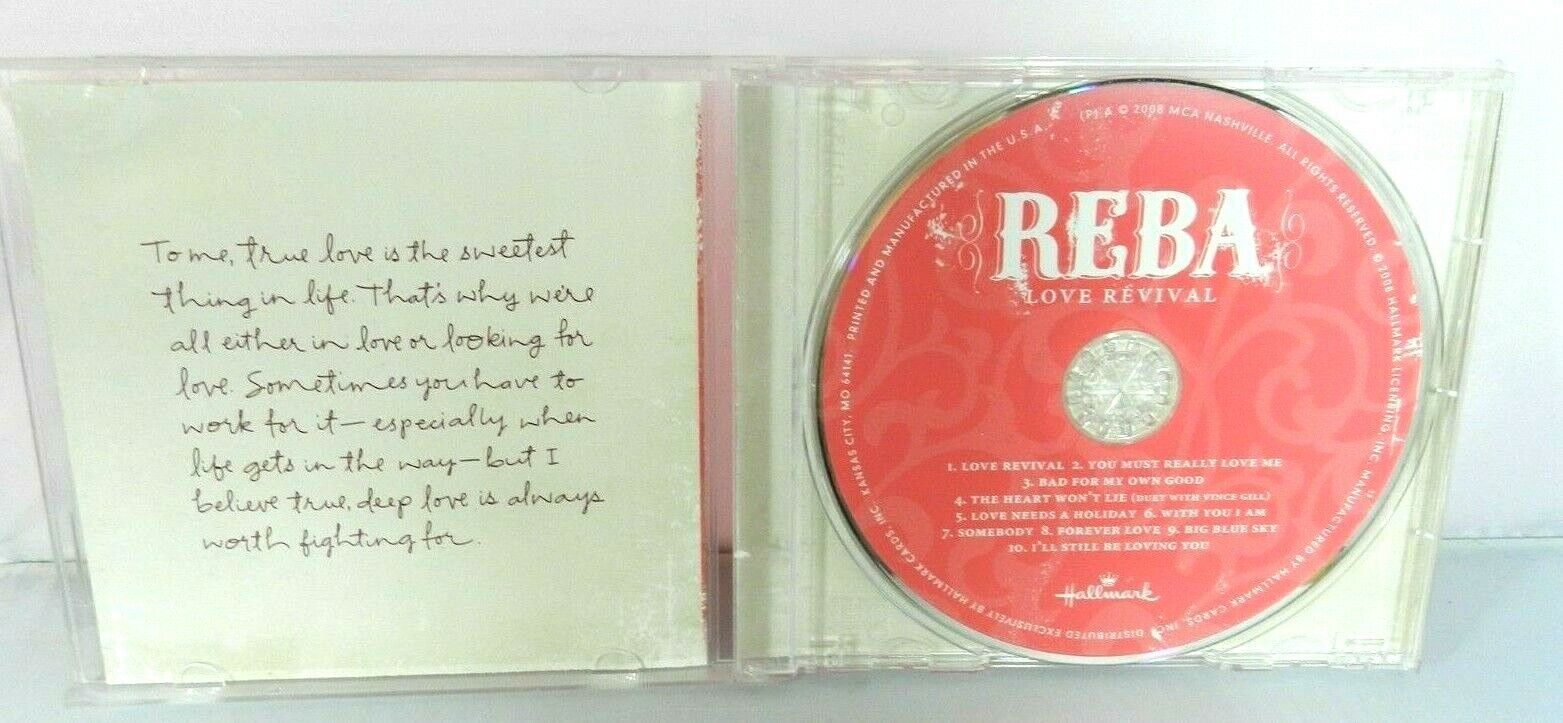 To me, true love is the sweetest
thing in life. That's why we're
all either in love or looking for
love. Sometimes you have to
work for it—especially when
life gets in the way—but I
believe true, deep love is always
worth fighting for.
REBA
LOVE REVIVAL
1. LOVE REVIVAL 2. YOU MUST REALLY LOVE ME
3. BAD FOR MY OWN GOOD
4. THE HEART WON'T LIE (DUET WITH VINCE GILL)
5. LOVE NEEDS A HOLIDAY 6. WITH YOU I AM
7. SOMEBODY 8. FOREVER LOVE 9. BIG BLUE SKY
10. I'LL STILL BE LOVING YOU
Hallmark
(P) & © 2008 MCA NASHVILLE. ALL RIGHTS RESERVED. © 2008 HALLMARK LICENSING, INC. MANUFACTURED BY HALLMARK CARDS, INC. DISTRIBUTED EXCLUSIVELY BY HALLMARK CARDS, INC. KANSAS CITY, MO 64141. PRINTED AND MANUFACTURED IN THE U.S.A.